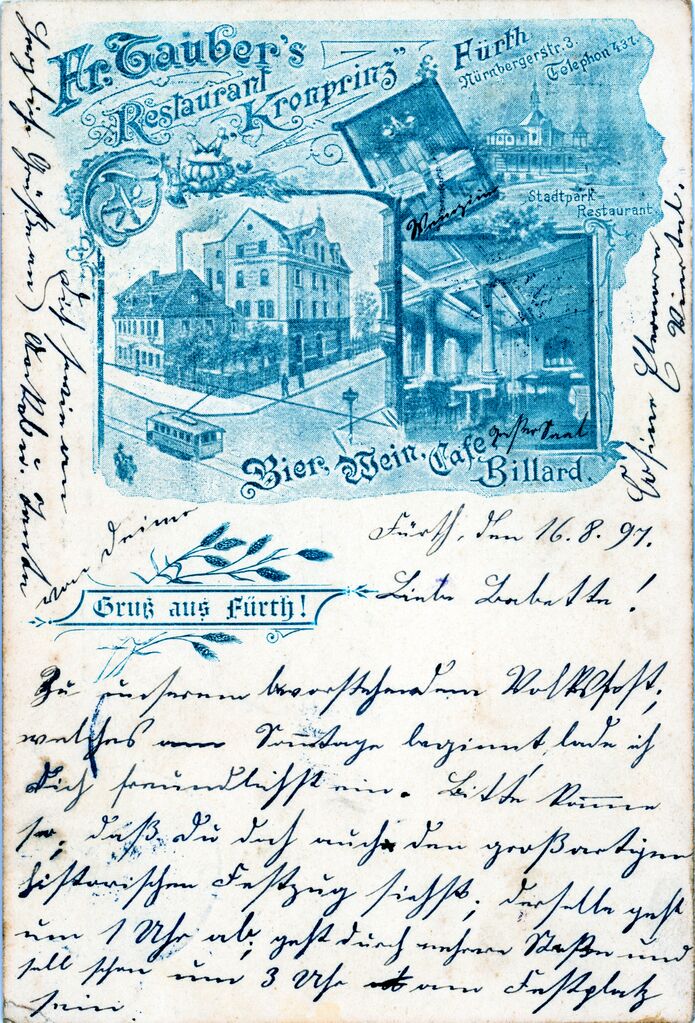 Fr. Tauber's
Restaurant
"Kronprinz"
Fürth
Nürnbergerstr. 3.
Telephon 437.
Stadtpark-
Restaurant
Bier, Wein, Cafe
Billard.
Gruß aus Fürth!
Fürth, den 16.8.97.
Liebe Babette!
Zu unserem bevorstehendem Volksfest,
welches am Sonntage beginnt, lade ich
Dich freundlichst ein. Bitte komme
so, daß Du doch auch den großartigen
historischen Festzug siehst; derselbe geht
um 1 Uhr ab, geht durch mehrere Straßen und
soll schon um 3 Uhr am Festplatz
sein.
Herzliche Grüße an
von Deine